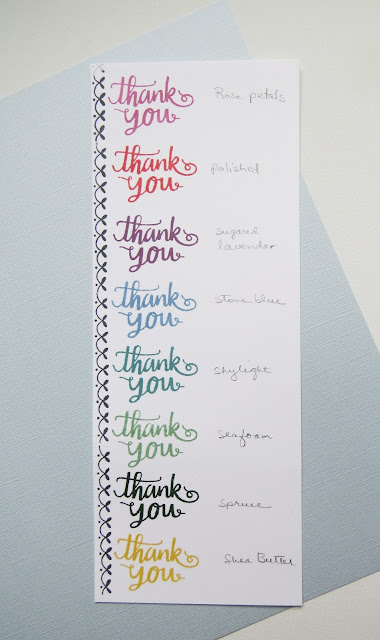 thank
you
Rose petals
thank
you
polished
thank
you
sugared
lavendar
thank
you
stone blue
thank
you
skylight
thank
you
seafoam
thank
you
spruce
thank
you
Shea Butter